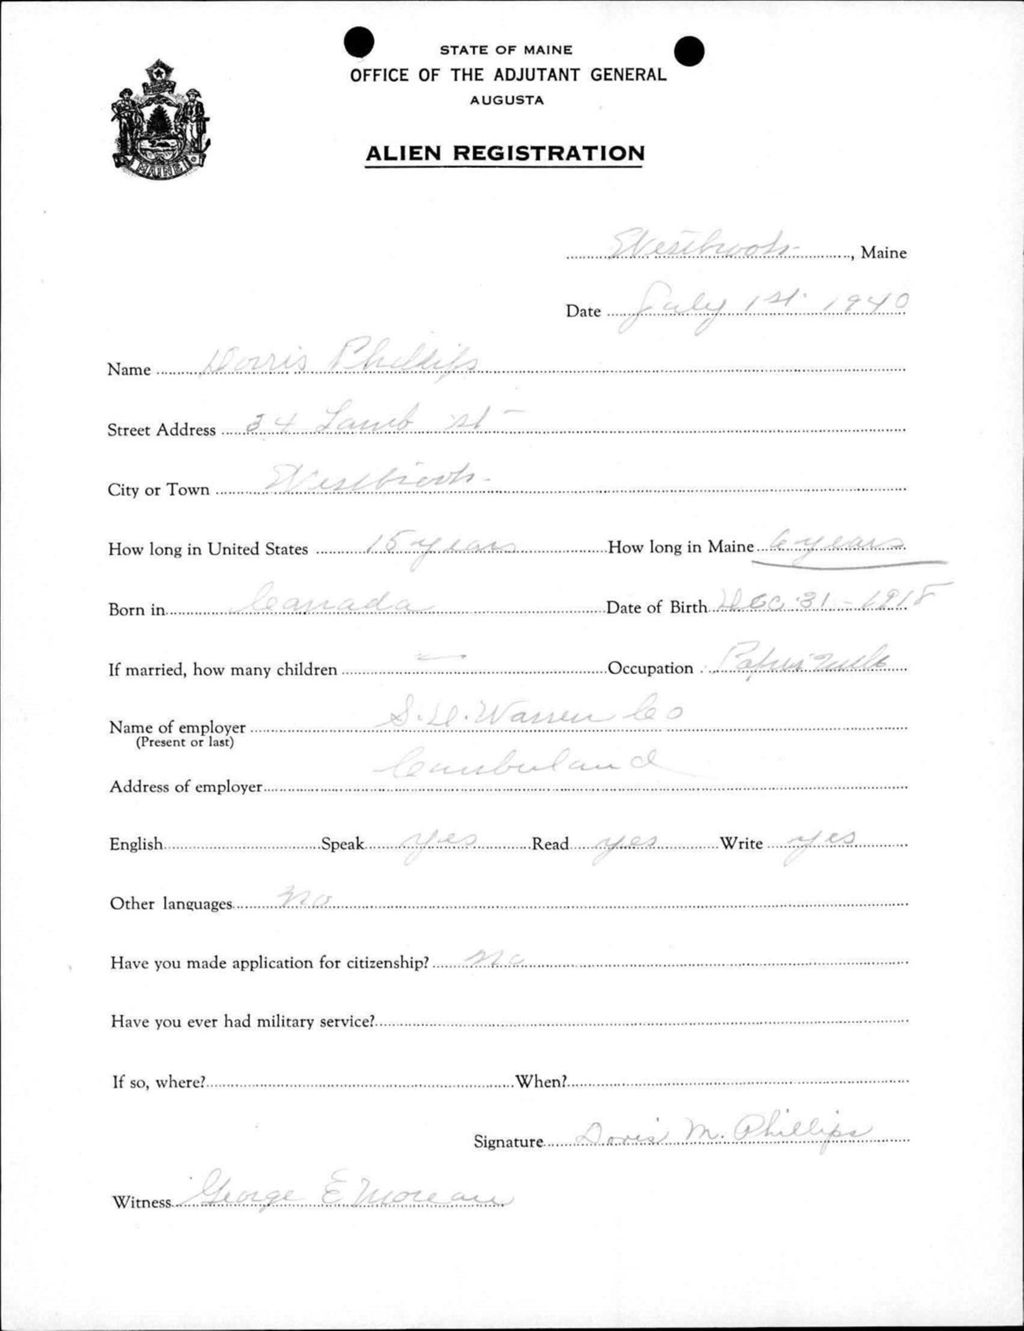 STATE OF MAINE
OFFICE OF THE ADJUTANT GENERAL
AUGUSTA
ALIEN REGISTRATION
MAINE
Westbrook, Maine
Date July 1st. 1940
Name Dorris Phillips
Street Address 34 Lamb st
City or Town Westbrook
How long in United States 15 years How long in Maine 6 years
Born in Canada Date of Birth Dec 31 - 1918
If married, how many children — Occupation Paper Mill
Name of employer S. D. Warren Co
(Present or last)
Address of employer Cumberland
English Speak yes Read yes Write yes
Other languages No
Have you made application for citizenship? No
Have you ever had military service?
If so, where? When?
Signature Doris M. Phillips
Witness George E Moreau